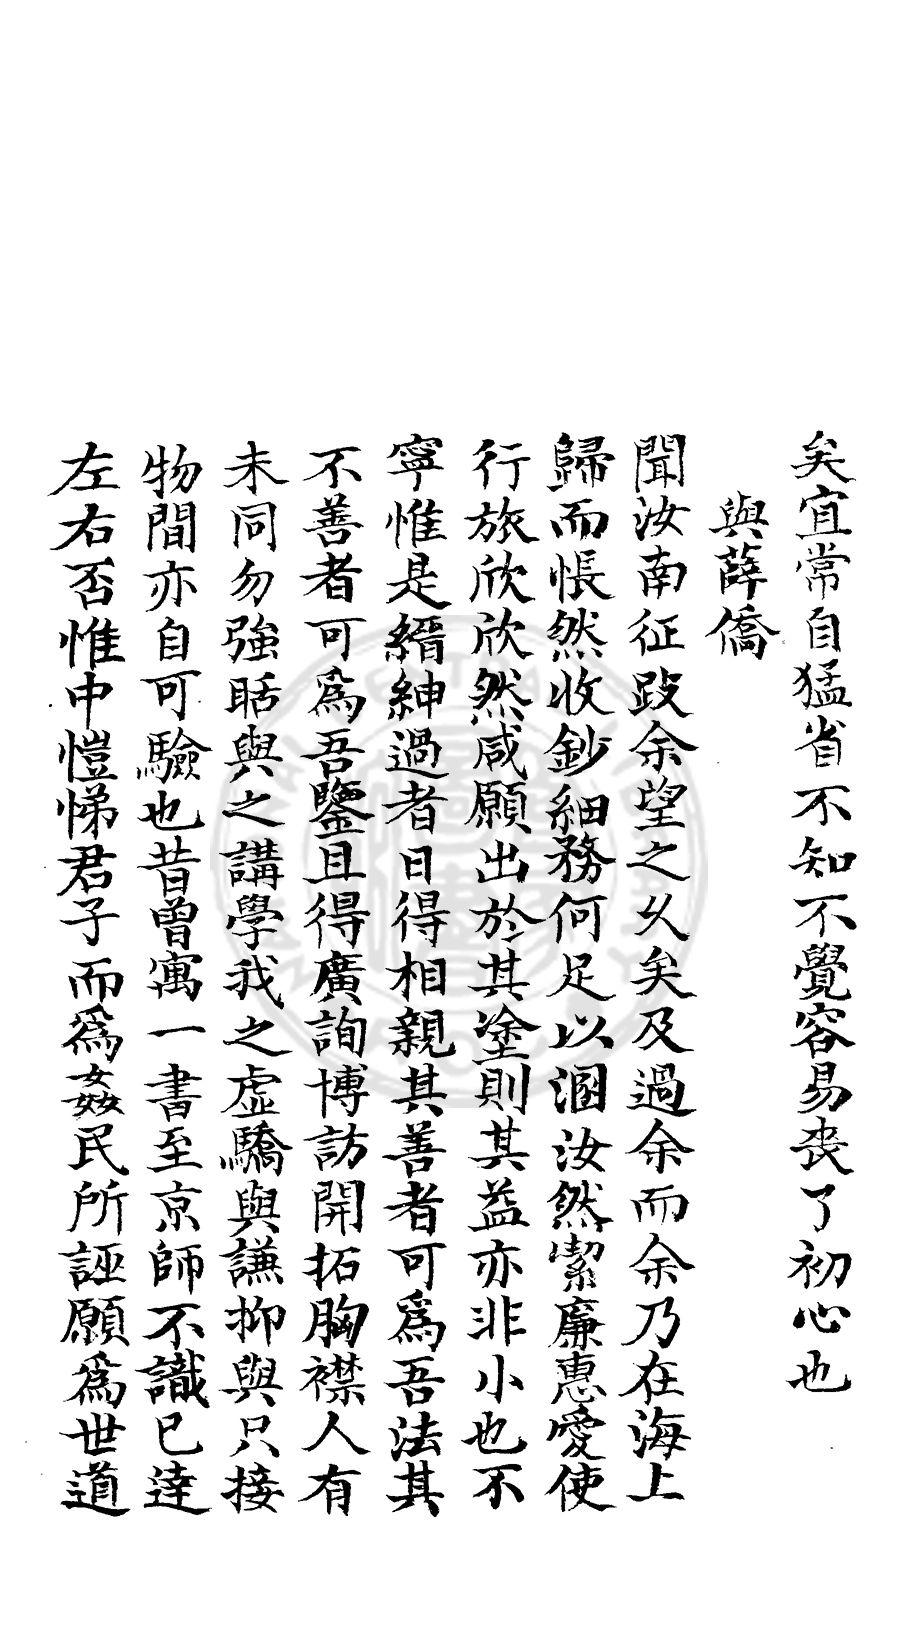 矣宜常自猛省不知不覺容易喪了初心也
與薛僑
聞汝南征跂余望之乆矣及過余而余乃在海上
歸而悵然收鈔細務何足以溷汝然潔廉惠愛使
行旅欣欣然咸願出於其塗則其益亦非小也不
寧惟是縉紳過者日得相親其善者可爲吾法其
不善者可爲吾鑒且得廣詢博訪開拓胸襟人有
未同勿強聒與之講學我之虛驕與謙抑與只接
物間亦自可驗也昔曽寓一書至京師不識已達
左右否惟中愷悌君子而爲姦民所誣願爲世道